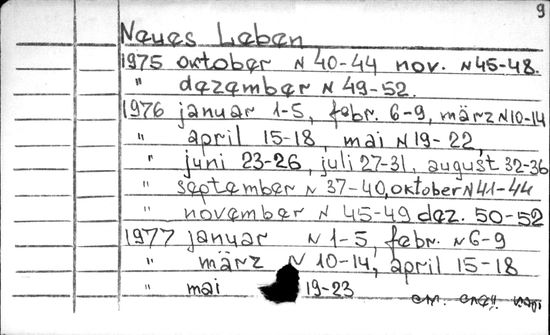 9
Neues Leben
1975 oktober N 40-44 nov. N 45-48.
" dezember N 49-52.
1976 januar 1-5, febr. 6-9, märz N10-14
" april 15-18, mai N 19-22,
" juni 23-26, juli 27-31, august 32-36
" september N 37-40, oktober N 41-44
" november N 45-49 dez. 50-52
1977 januar N 1-5, febr. N 6-9
" märz N 10-14, april 15-18
" mai 19-23